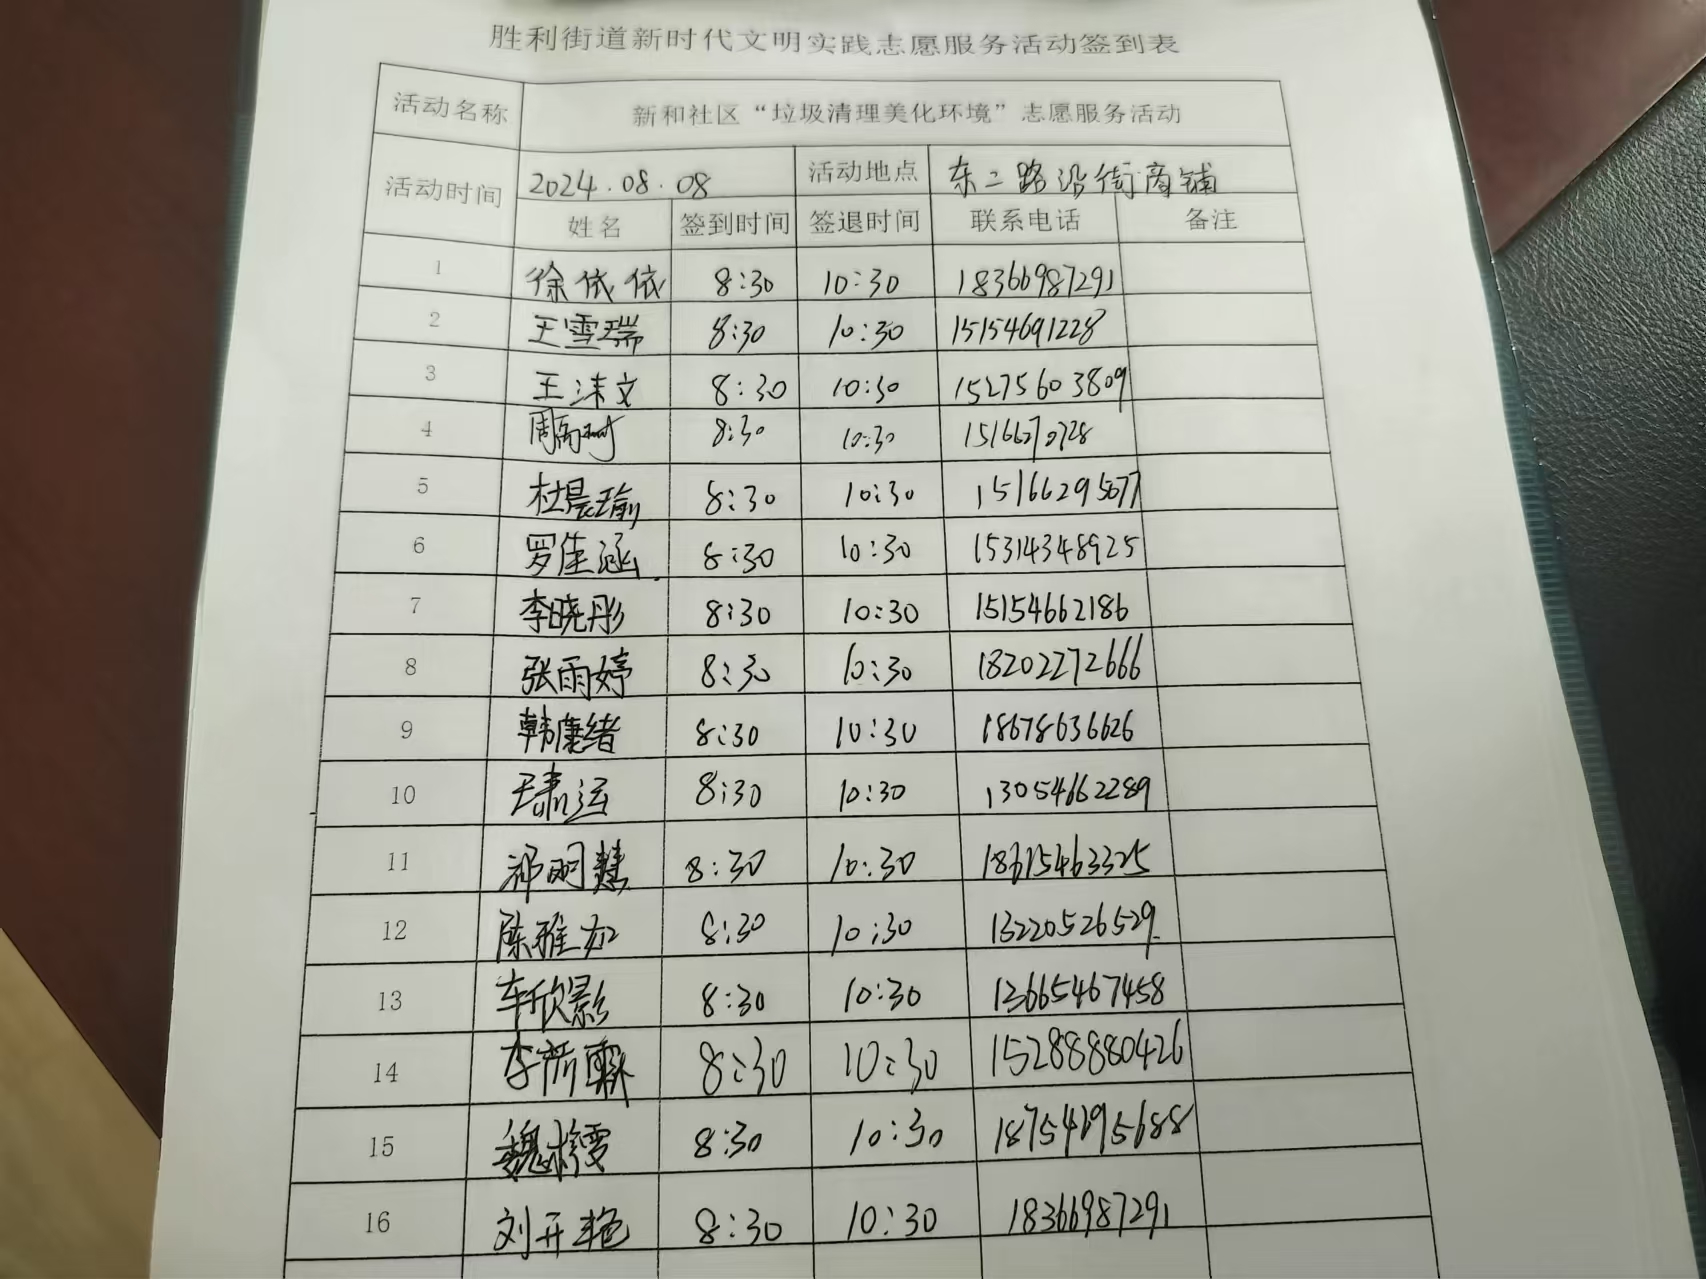 胜利街道新时代文明实践志愿服务活动签到表
活动名称 新和社区“垃圾清理美化环境”志愿服务活动
活动时间 2024.08.08 活动地点 东二路沿街商铺
姓名 签到时间 签退时间 联系电话 备注
1 徐依依 8:30 10:30 18366987291
2 王雪瑞 8:30 10:30 15154691228
3 王沫文 8:30 10:30 15275603809
4 周雨树 8:30 10:30 15166270728
5 杜晨瑜 8:30 10:30 15166295677
6 罗佳涵 8:30 10:30 15314348925
7 李晓彤 8:30 10:30 15154662186
8 张雨婷 8:30 10:30 18202272666
9 韩康绪 8:30 10:30 18678636626
10 8:30 10:30 13054662289
11 祁明慧 8:30 10:30 18615463325
12 陈雅如 8:30 10:30 13220526529
13 车欣影 8:30 10:30 13665467458
14 8:30 10:30 15288880426
15 8:30 10:30 18754695688
16 刘开艳 8:30 10:30 18366987291